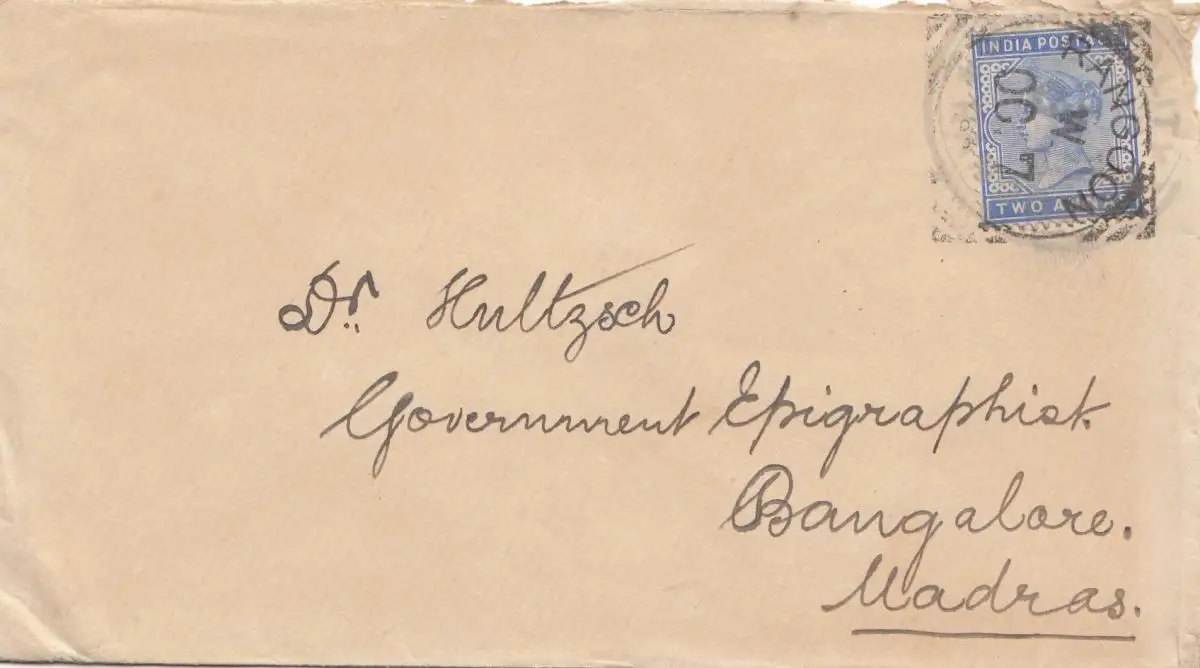 INDIA POSTAGE
RANGOON
OC 7
M
TWO ANNAS
Dr. Hultzsch
Government Epigraphist.
Bangalore.
Madras.